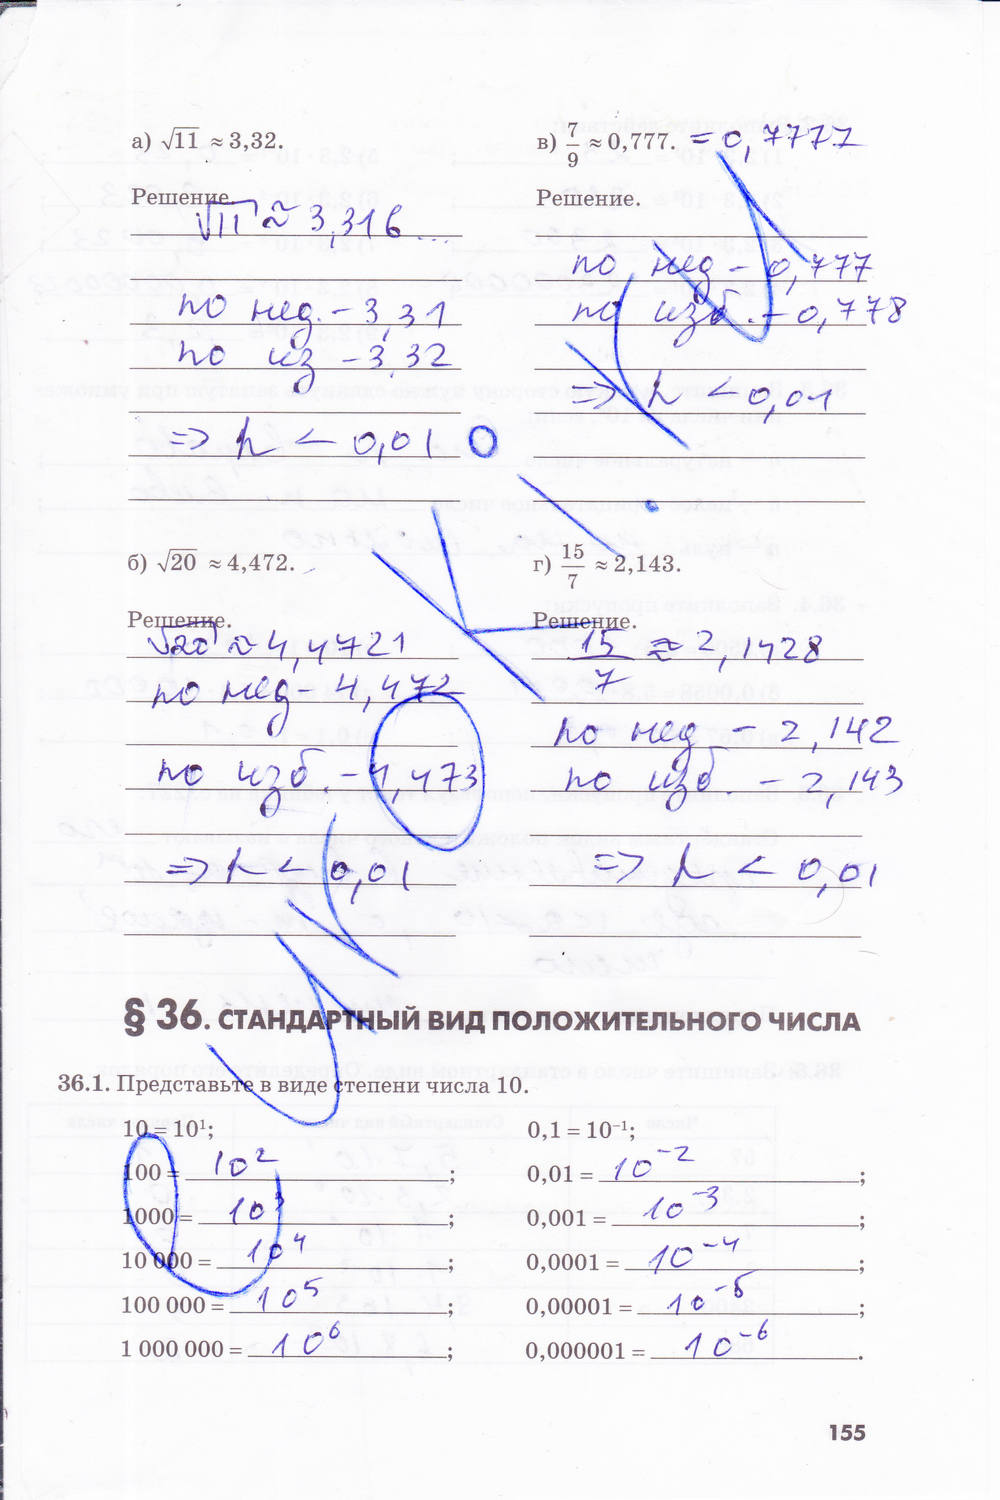 а) √11 ≈ 3,32.
Решение.
√11 ≈ 3,316...
по нед. – 3,31
по из – 3,32
=> h < 0,01
в) 7/9 ≈ 0,777. = 0,7777
Решение.
по нед – 0,777
по изб. – 0,778
=> h < 0,01
б) √20 ≈ 4,472.
Решение.
√20 ≈ 4,4721
по нед – 4,472
по изб. – 4,473
=> h < 0,01
г) 15/7 ≈ 2,143.
Решение.
15/7 ≈ 2,1428
по нед – 2,142
по изб – 2,143
=> h < 0,01
§ 36. СТАНДАРТНЫЙ ВИД ПОЛОЖИТЕЛЬНОГО ЧИСЛА
36.1. Представьте в виде степени числа 10.
10 = 10¹;
100 = 10²;
1000 = 10³;
10 000 = 10⁴;
100 000 = 10⁵;
1 000 000 = 10⁶;
0,1 = 10⁻¹;
0,01 = 10⁻²;
0,001 = 10⁻³;
0,0001 = 10⁻⁴;
0,00001 = 10⁻⁵;
0,000001 = 10⁻⁶.
155